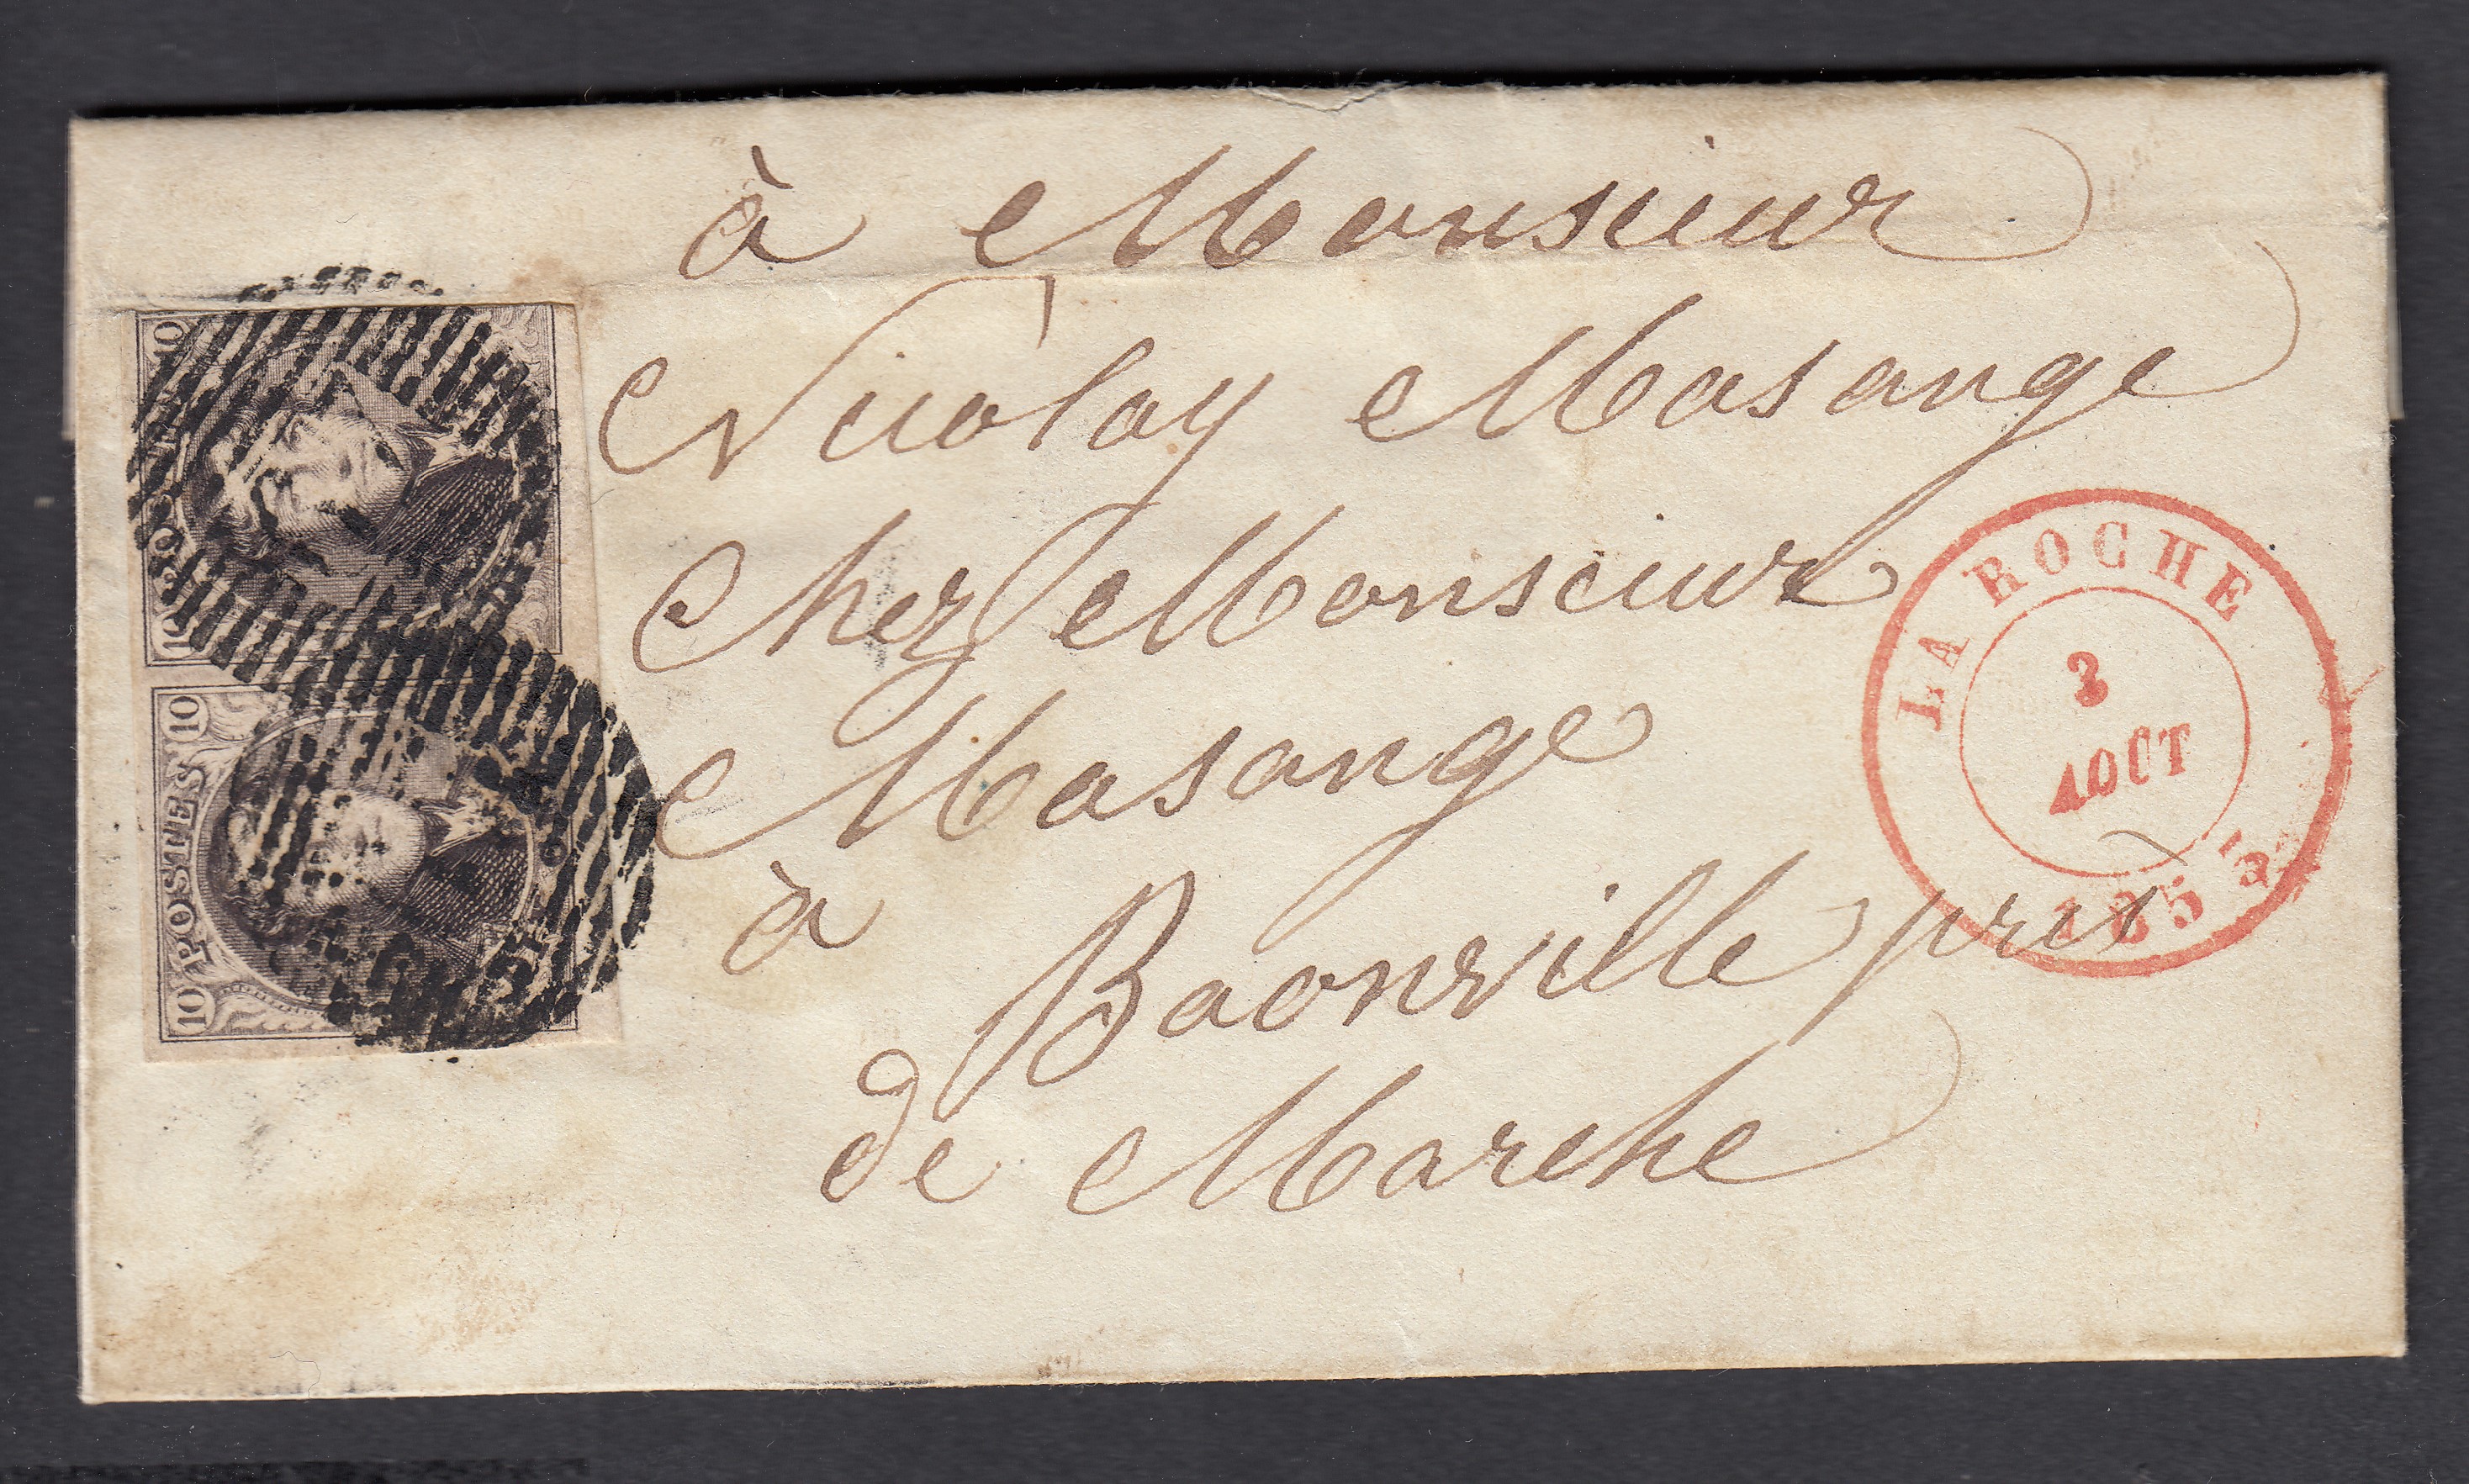 à Monsieur
Nicolay Masange
Chez Monsieur
Masange
à
Baonville près
de Marche
LA ROCHE
3
AOUT
185
10
10
10 POSTES 10